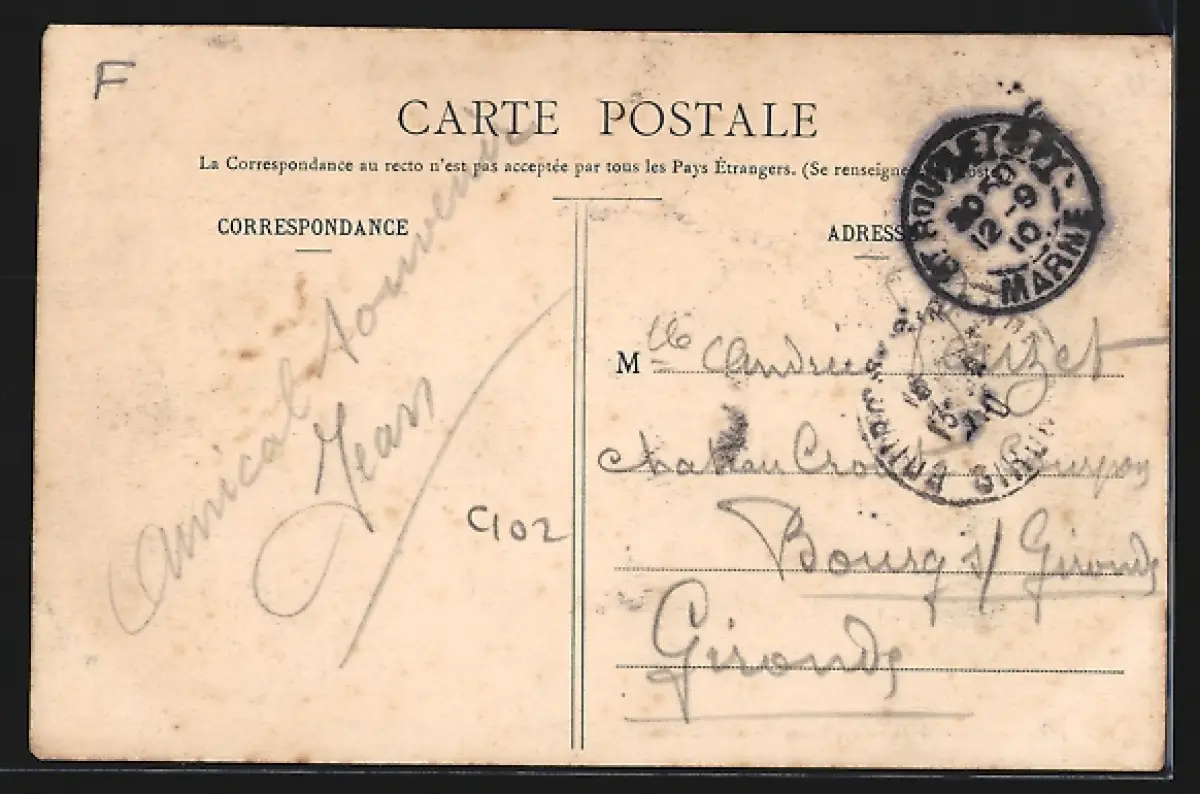 F
CARTE POSTALE
La Correspondance au recto n'est pas acceptée par tous les Pays Étrangers. (Se renseigne
CORRESPONDANCE
ADRESS
Amical souvenir
Jean
C102
Mlle Andrée
Chateau
Bourg s/ Gironde
Gironde
20 30
12 -9
10
MARNE
10